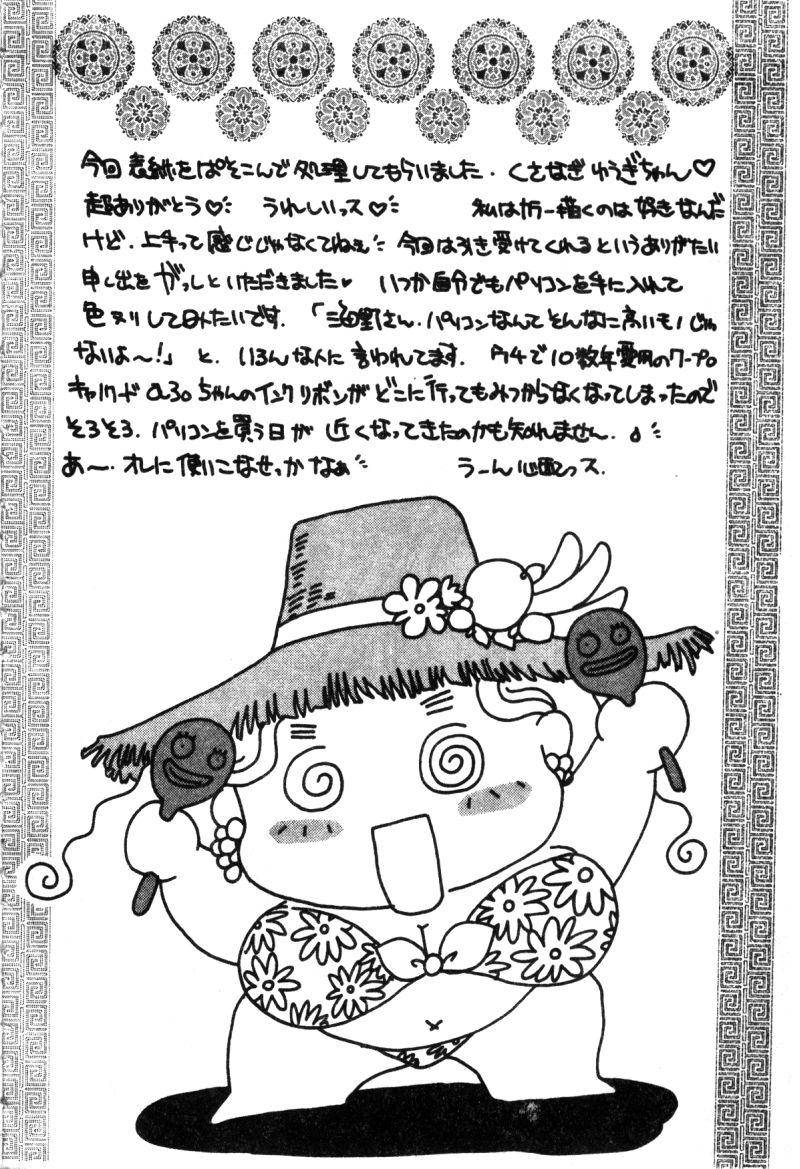 今回表紙をぱそこんで処理してもらいました. くさなぎゆうぎちゃん♡
超ありがとう♡ うれしいっス♡ 私はカラー描くのは好きなんだ
けど. 上手って感じじゃなくてねぇ 今回は引き受けてくれるというありがたい
申し出をがっしといただきました♥ いつか自分でもパソコンを手に入れて
色ヌリしてみたいです. 「 さん. パソコンなんてそんなに高いもんじゃ
ないよ〜!」と. いろんな人に言われてます. ウチで10数年愛用のワープロ
キャノワードα30ちゃんのインクリボンがどこに行ってもみつからなくなってしまったので
そろそろ. パソコンを買う日が近くなってきたのかも知れません. ♪
あ〜. オレに使いこなせっかなぁ うーん心配っス.